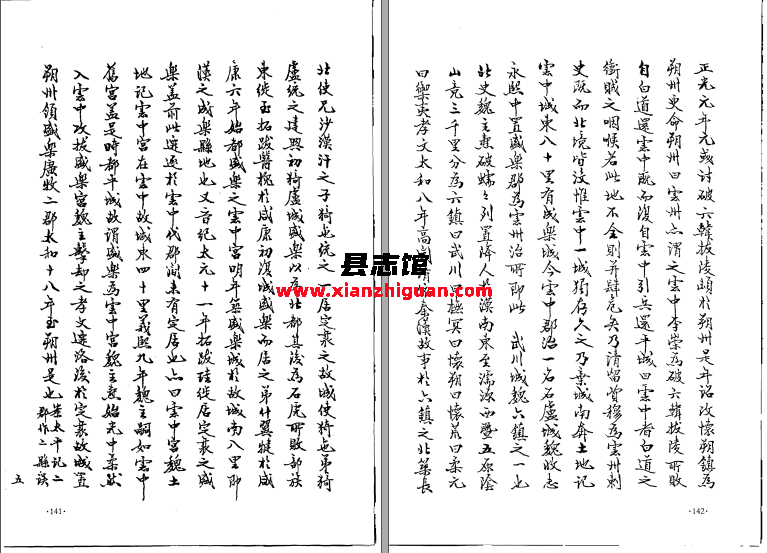 北使兄沙漠汗之子猗㐌統之一居定襄之故城使猗㐌弟猗
盧統之建興初猗盧城盛樂以為北都其後為石虎所敗部族
東徙至拓跋翳槐於咸康初復城盛樂而居之弟什翼犍於咸
康六年始都盛樂之雲中宮明年築盛樂城於故城南八里即
漢之成樂縣地也又晉紀太元十一年拓跋珪徙居定襄之盛
樂蓋前此遷逐於雲中代郡間未有定居也亦曰雲中宮魏土
地記雲中宮在雲中故城東四十里義熙九年魏主嗣如雲中
舊宮蓋是時都平城故謂盛樂為雲中宮魏主燾始光中柔然
入雲中攻拔盛樂宮魏主擊却之孝文遷洛後於定襄故城置
朔州領盛樂廣牧二郡太和十八年至朔州是也
太平記二
郡作二縣誤
五
·141·
正光元年元彧討破六韓拔陵頓於朔州是年詔改懷朔鎮為
朔州更命朔州曰雲州亦謂之雲中李崇為破六韓拔陵所敗
自白道還雲中既而復自雲中引兵還平城曰雲中者白道之
衝賊之咽喉若此地不全則并肆危矣乃請留費穆為雲州刺
史既而北境皆沒惟雲中一城獨存久之乃棄城南奔土地記
雲中城東八十里有成樂城今雲中郡治一名石盧城魏收志
永熙中置盛樂郡為雲州治所即此 武川城魏六鎮之一也
北史魏主燾破蠕々列置降人於漠南東至濡源西暨五原陰
山竟三千里分為六鎮曰武川曰撫冥曰懷朔曰懷荒曰柔元
曰禦夷孝文太和八年高閭請依秦漢故事於六鎮之北築長
·142·
县志馆
www.xianzhiguan.com